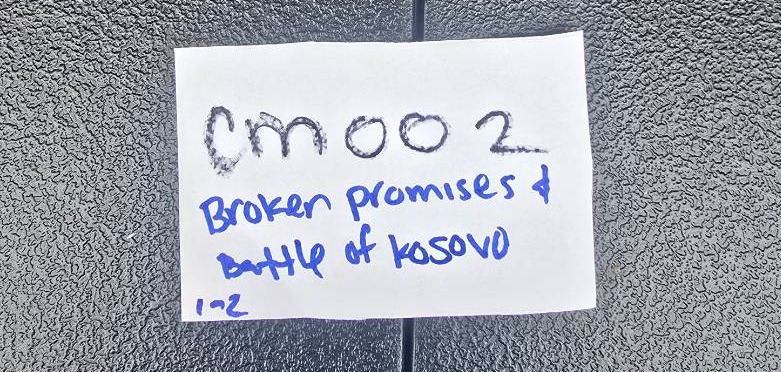 Cm002
Broken promises &
Battle of kosovo
1-2